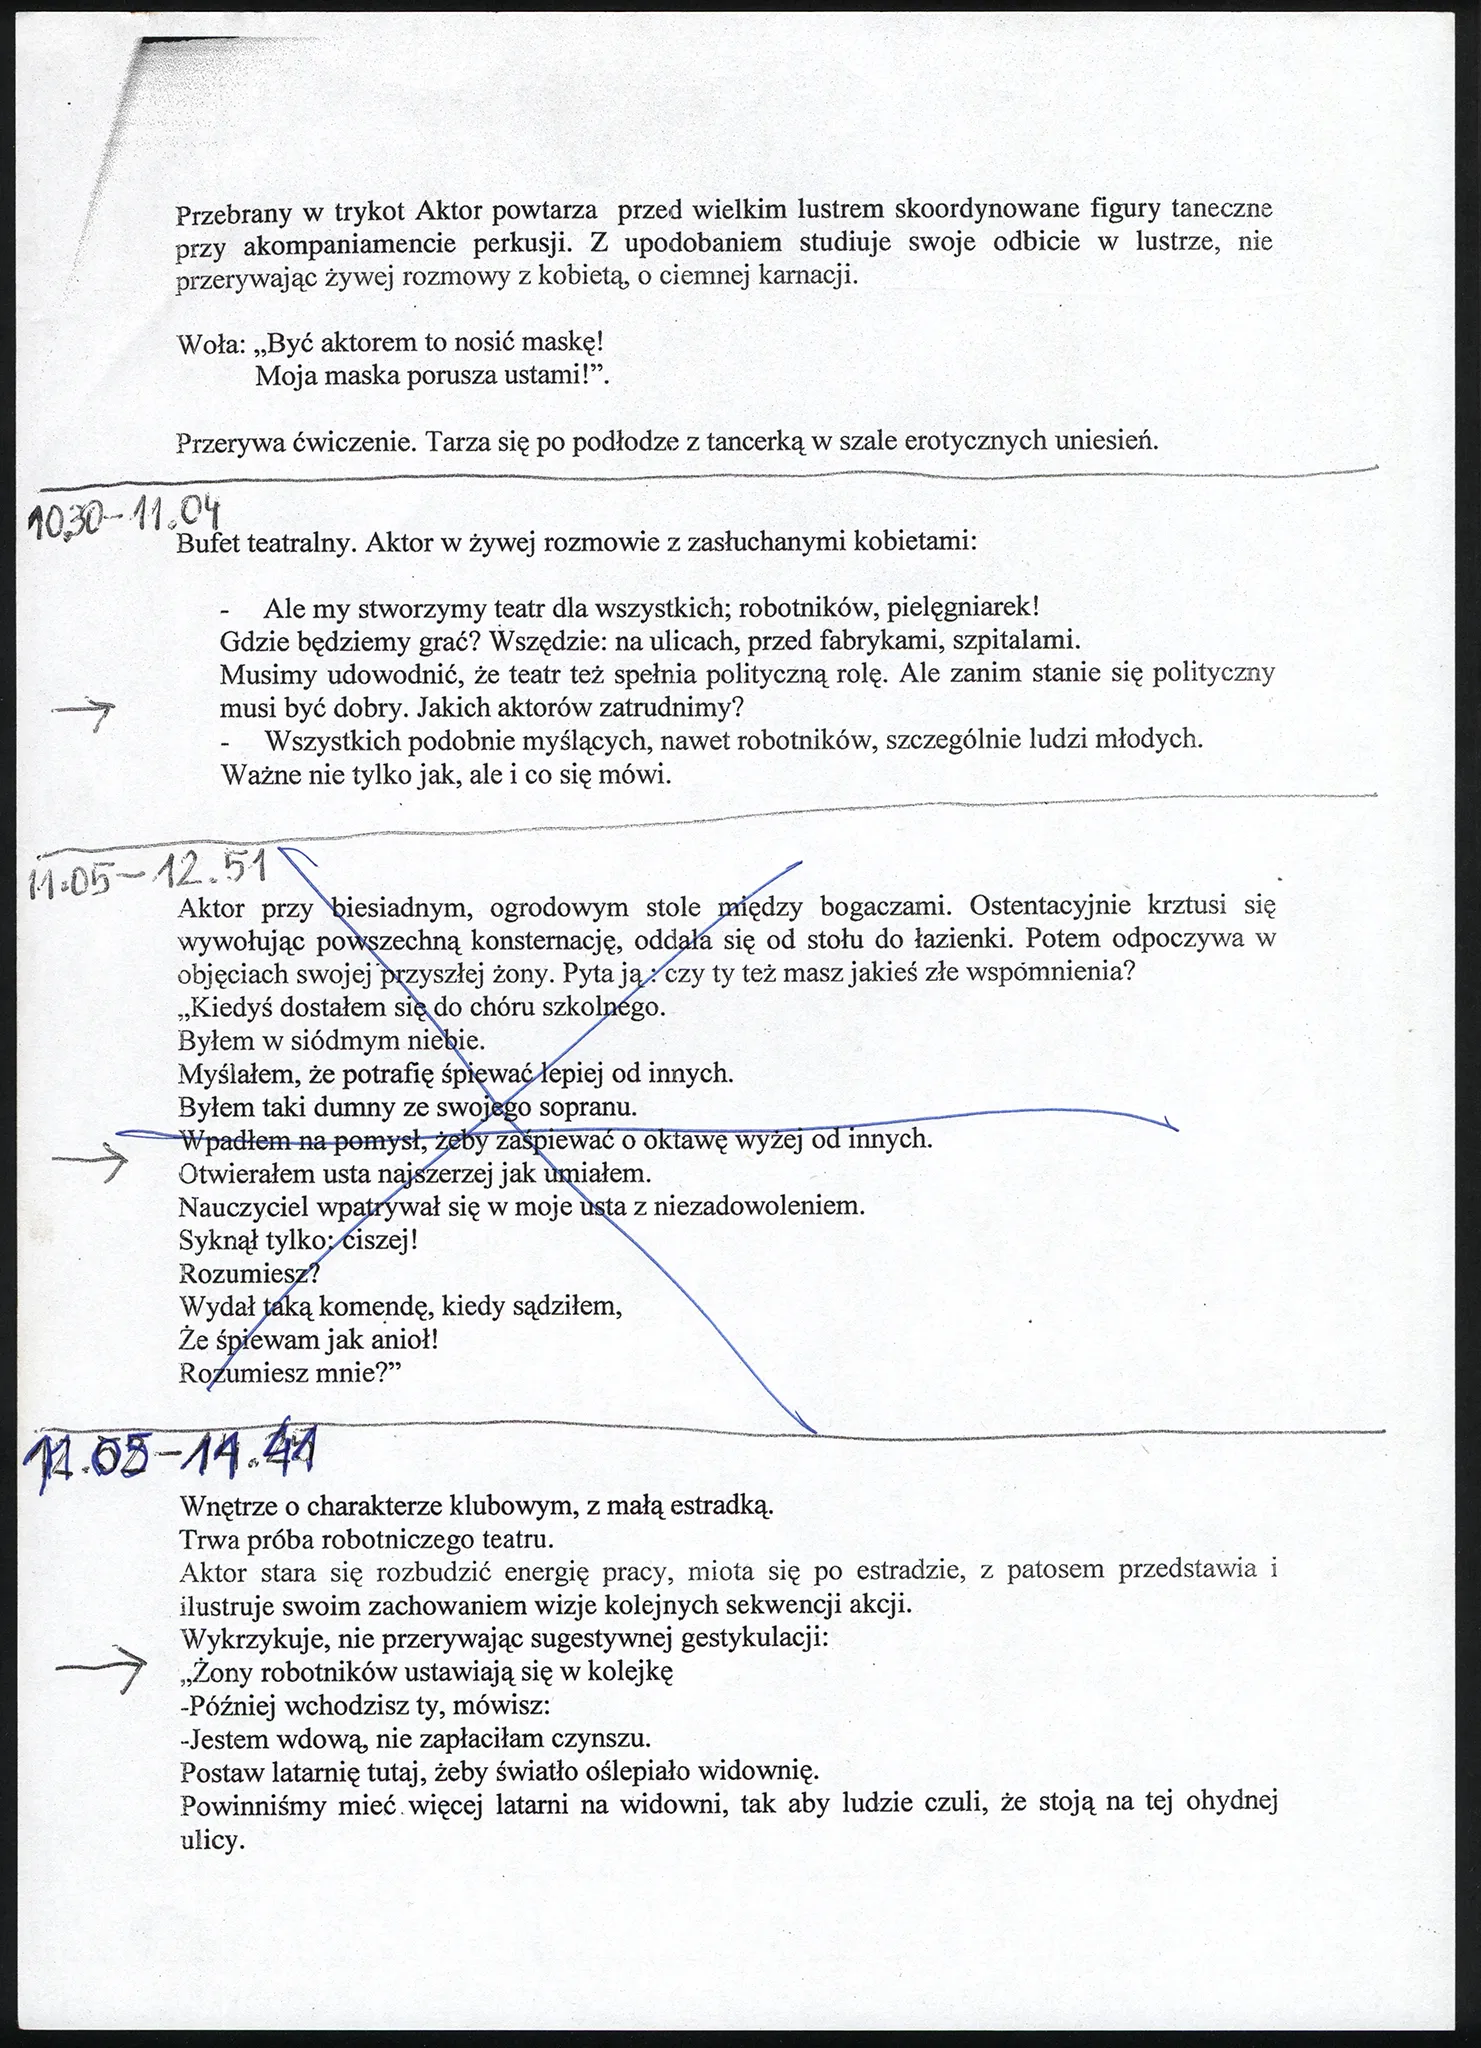 Przebrany w trykot Aktor powtarza przed wielkim lustrem skoordynowane figury taneczne
przy akompaniamencie perkusji. Z upodobaniem studiuje swoje odbicie w lustrze, nie
przerywając żywej rozmowy z kobietą, o ciemnej karnacji.
Woła: „Być aktorem to nosić maskę!
Moja maska porusza ustami!”.
Przerywa ćwiczenie. Tarza się po podłodze z tancerką w szale erotycznych uniesień.
10.30-11.04
Bufet teatralny. Aktor w żywej rozmowie z zasłuchanymi kobietami:
- Ale my stworzymy teatr dla wszystkich; robotników, pielęgniarek!
Gdzie będziemy grać? Wszędzie: na ulicach, przed fabrykami, szpitalami.
Musimy udowodnić, że teatr też spełnia polityczną rolę. Ale zanim stanie się polityczny
→ musi być dobry. Jakich aktorów zatrudnimy?
- Wszystkich podobnie myślących, nawet robotników, szczególnie ludzi młodych.
Ważne nie tylko jak, ale i co się mówi.
11.05-12.51
Aktor przy biesiadnym, ogrodowym stole między bogaczami. Ostentacyjnie krztusi się
wywołując powszechną konsternację, oddala się od stołu do łazienki. Potem odpoczywa w
objęciach swojej przyszłej żony. Pyta ją : czy ty też masz jakieś złe wspomnienia?
„Kiedyś dostałem się do chóru szkolnego.
Byłem w siódmym niebie.
Myślałem, że potrafię śpiewać lepiej od innych.
Byłem taki dumny ze swojego sopranu.
Wpadłem na pomysł, żeby zaśpiewać o oktawę wyżej od innych.
→ Otwierałem usta najszerzej jak umiałem.
Nauczyciel wpatrywał się w moje usta z niezadowoleniem.
Syknął tylko: ciszej!
Rozumiesz?
Wydał taką komendę, kiedy sądziłem,
Że śpiewam jak anioł!
Rozumiesz mnie?”
11.05-14.41
Wnętrze o charakterze klubowym, z małą estradką.
Trwa próba robotniczego teatru.
Aktor stara się rozbudzić energię pracy, miota się po estradzie, z patosem przedstawia i
ilustruje swoim zachowaniem wizje kolejnych sekwencji akcji.
Wykrzykuje, nie przerywając sugestywnej gestykulacji:
→ „Żony robotników ustawiają się w kolejkę
-Później wchodzisz ty, mówisz:
-Jestem wdową, nie zapłaciłam czynszu.
Postaw latarnię tutaj, żeby światło oślepiało widownię.
Powinniśmy mieć więcej latarni na widowni, tak aby ludzie czuli, że stoją na tej ohydnej
ulicy.